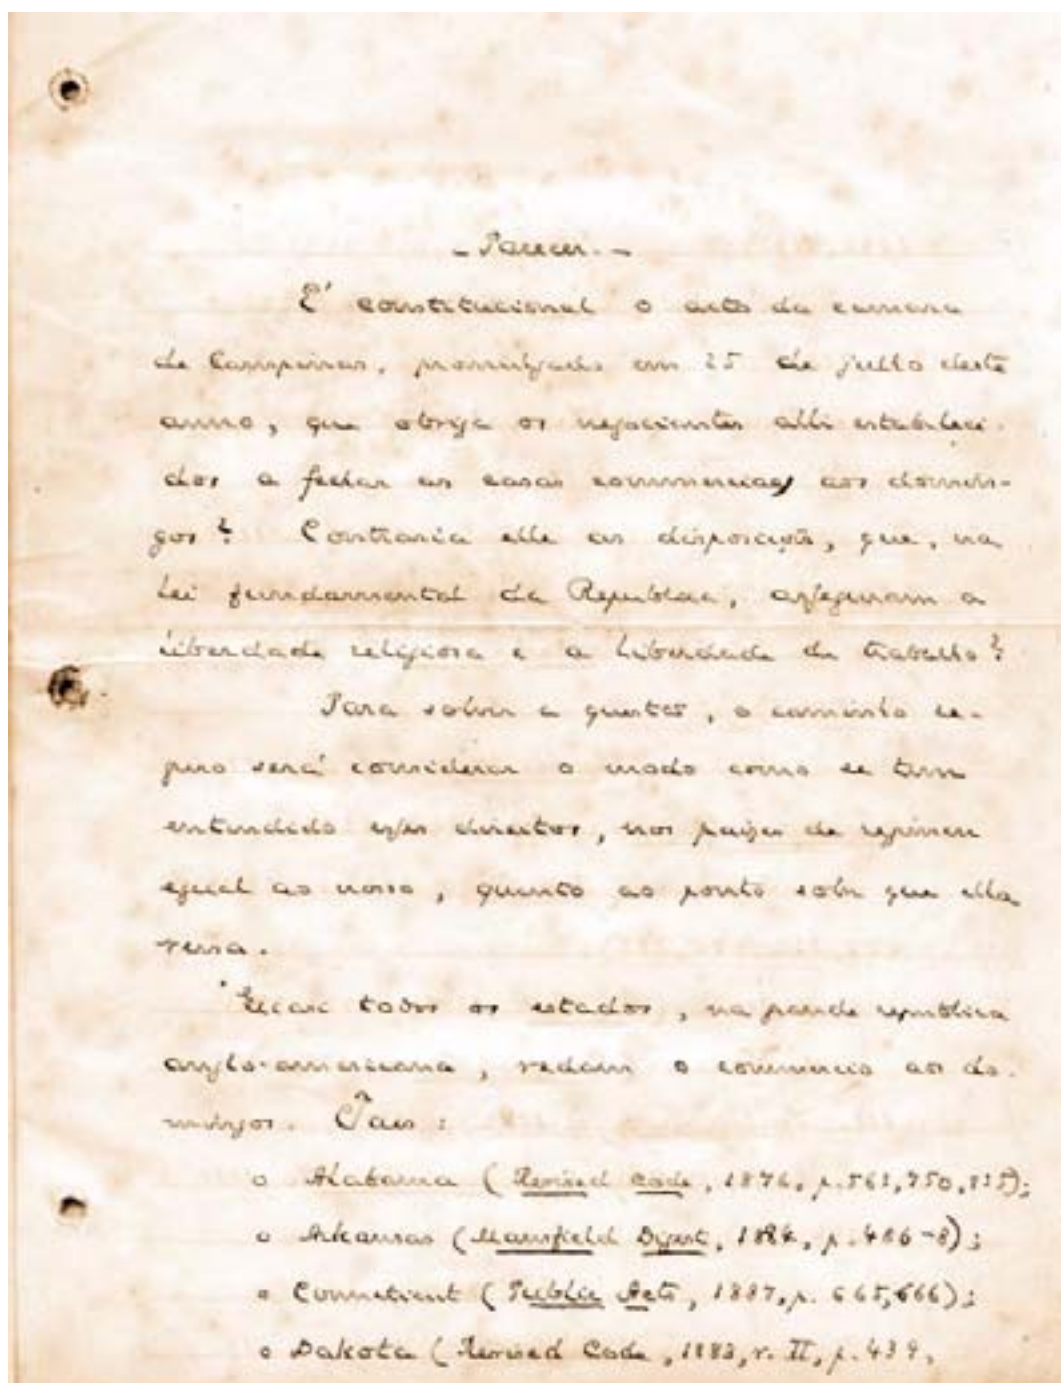 - Parecer. -
É constitucional o acto da camara
de Campinas, promulgado em 25 de julho deste
anno, que obriga os negociantes alli estabeleci-
dos a fechar as casas commerciaes aos domin-
gos? Contraria elle as disposições, que, na
lei fundamental da Republica, asseguram a
liberdade religiosa e a liberdade de trabalho?
Para solver a questão, o caminho se-
guro será considerar o modo como se tem
entendido esses direitos, nos paizes de regimen
egual ao nosso, quanto ao ponto sobre que ella
versa.
Quasi todos os estados, na grande republica
anglo-americana, vedam o commercio aos do-
mingos. Taes:
o Alabama (Revised Code, 1876, p. 561, 750, 835);
o Arkansas (Mansfield Digest, 1884, p. 486-8);
o Connecticut (Public Acts, 1887, p. 665, 666);
o Dakota (Revised Code, 1883, v. II, p. 439,